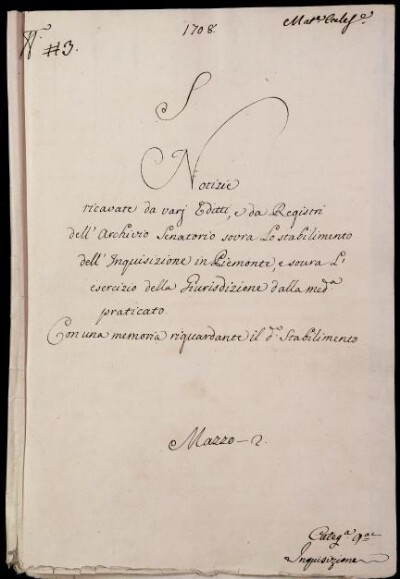 N.° #3.
1708.
Mat.e Eccles.e
S
Notizie
ricavate da varj Editti, e da Registri
dell' Archivio Senatorio sovra Lo stabilimento
dell' Inquisizione in Piemonte, e sovra L'
esercizio della Giurisdizione dalla med.a
praticato
Con una memoria riguardante il d.° Stabilimento
Mazzo - 2.
Categ.a 9.ne
Inquisizione